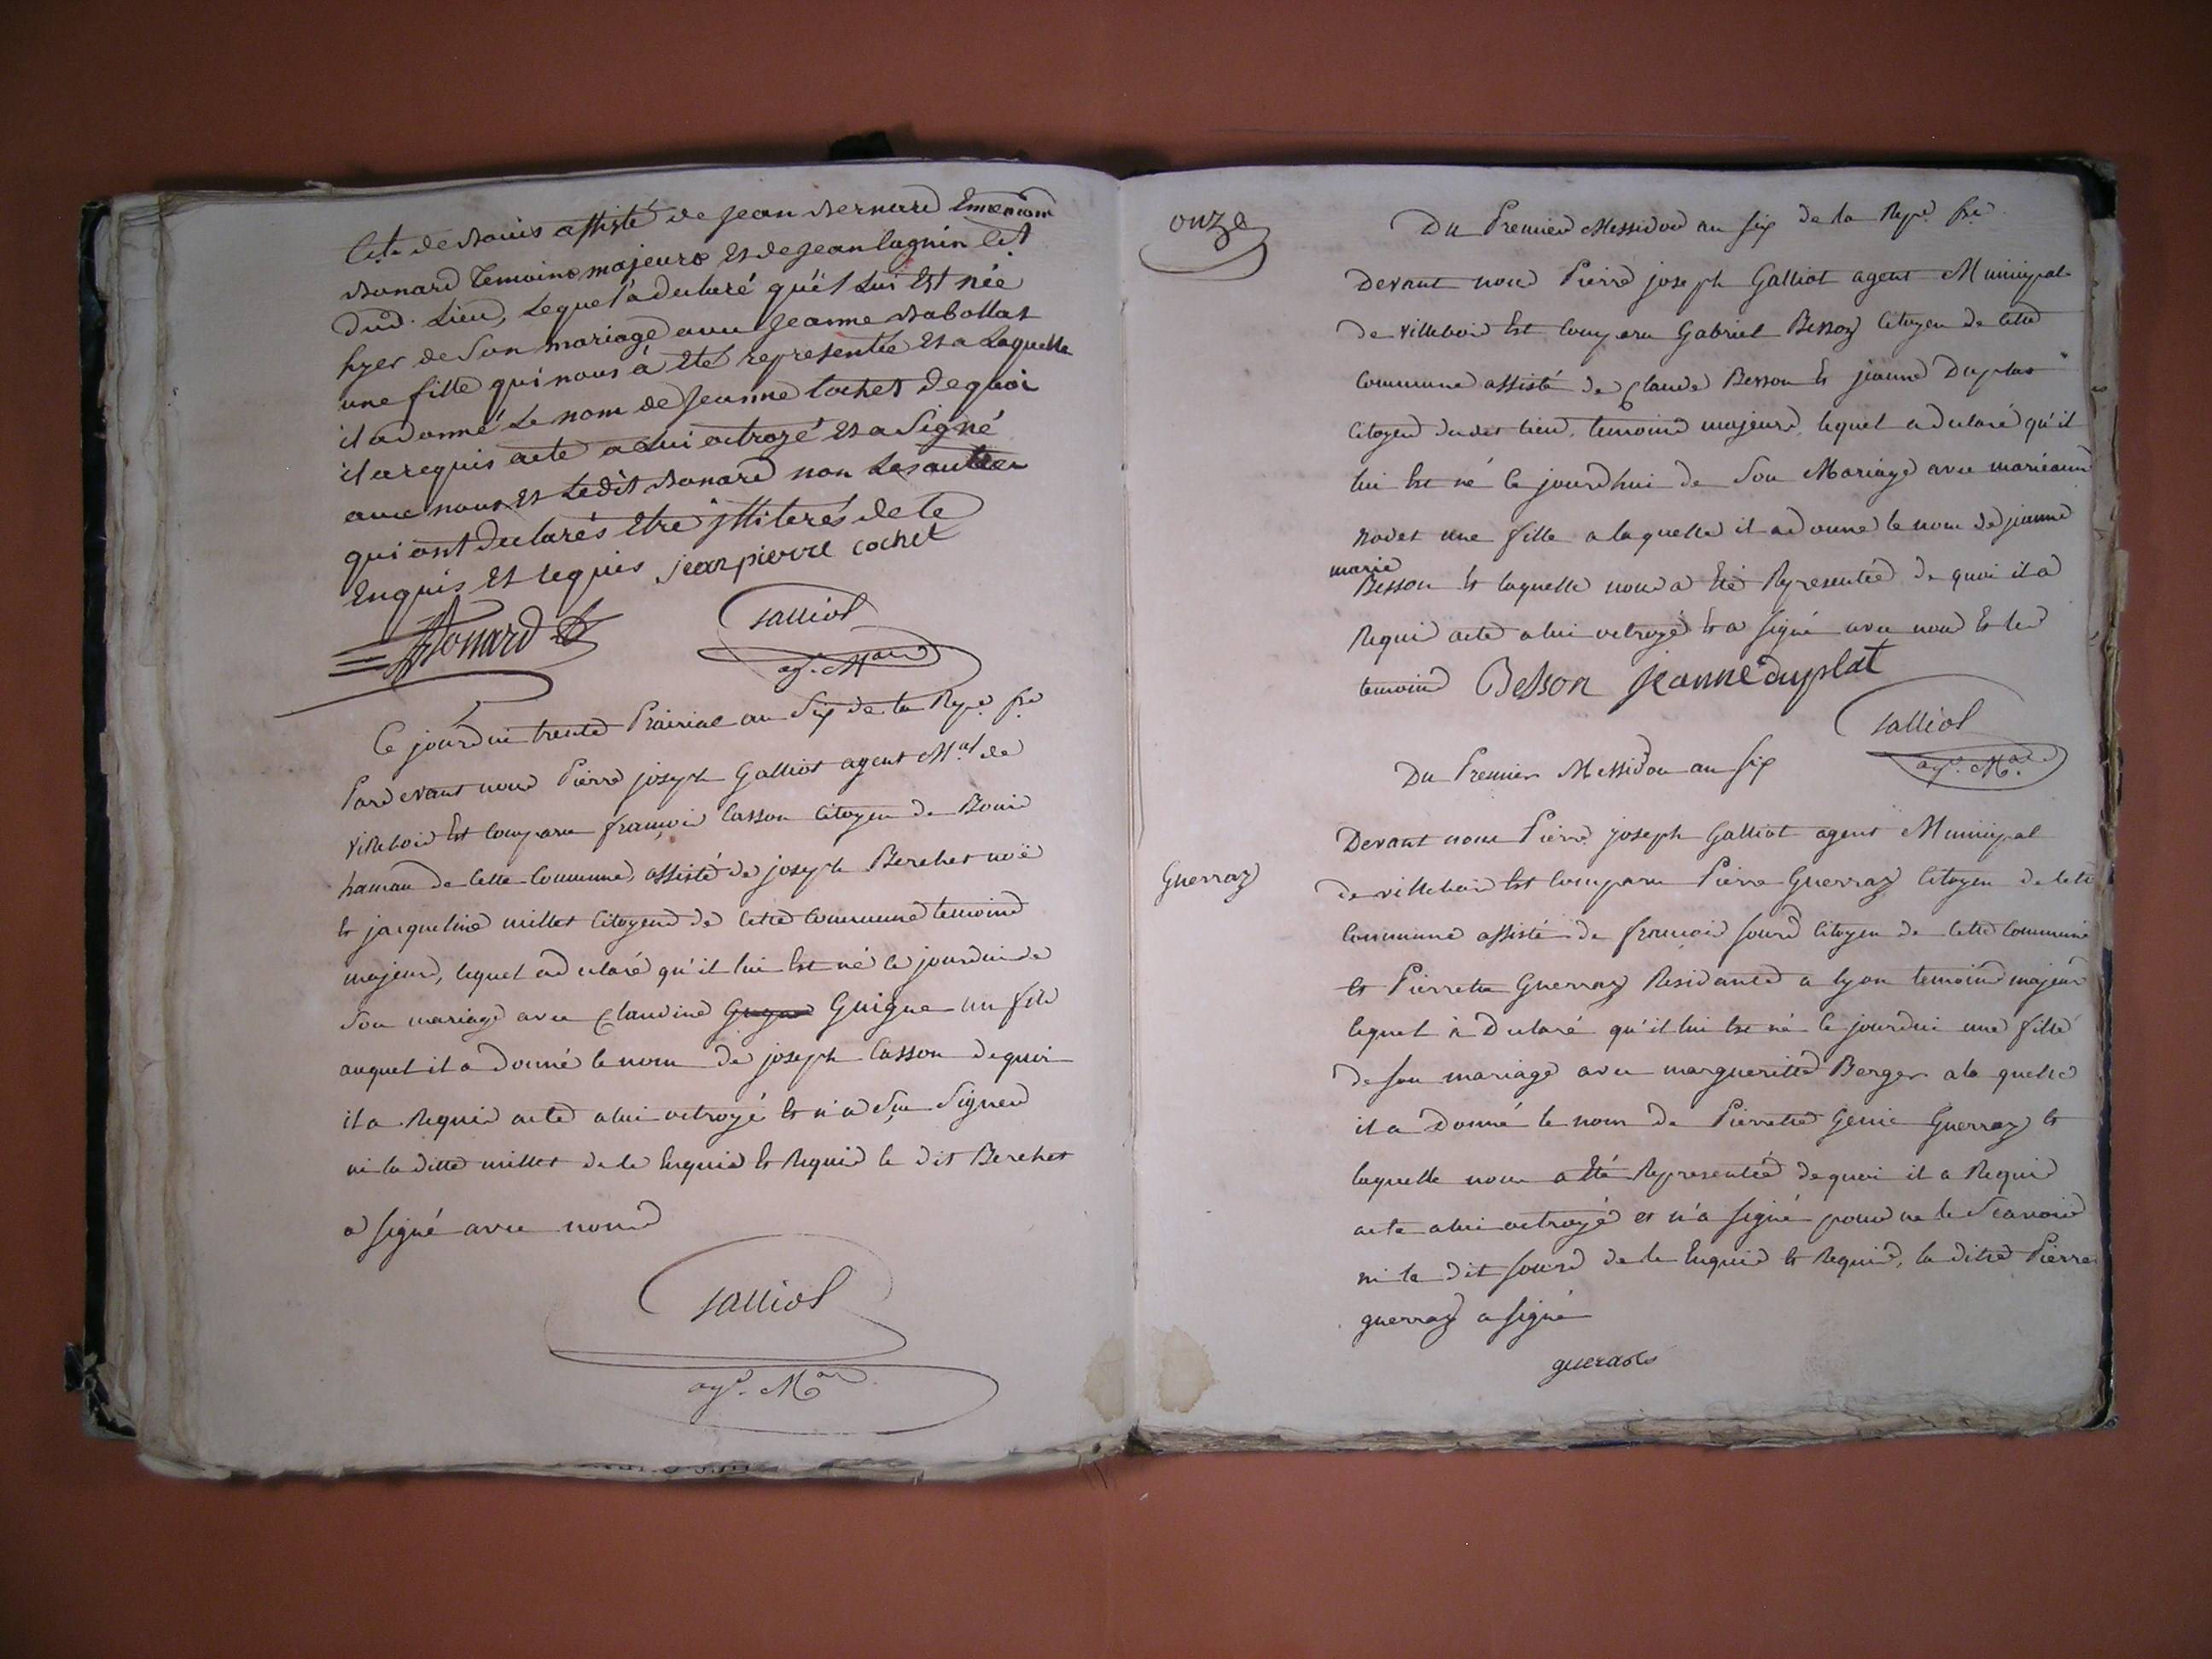 Cit. de Bouis assisté de jean Bernard
Bonard temoins majeurs et de jean Cagnin Cit
dud. Lieu, Lequel a declaré qu'el Lui Est née
hyer de Son mariage avec Jeanne
une fille qui nous a Eté representée Et a Laquelle
il a donné Le nom de Jeanne Cochet de quoi
il a requis acte a Lui octroyé Et a Signé
avec nous Et Ledit Bonard non Les autres
qui ont declarés Etre illiterés de ce
Enquis Et requis jean pierre cochet
Bonard
Galliot
agt. Mal
Ce jourdui trente Prairial an Six de la Repe. fse
Pardevant nous Pierre joseph Galliot agent Mal de
Villebois Est comparu françois Casson Citoyen de Bouis
hamau de cette Commune, assisté de joseph Berchet
et jaqueline millet Citoyens de cette Commune temoins
majeurs, lequel a declaré qu'il lui Est né ce jourdui de
Son mariage avec Claudine Guigue un fils
auquel il a donné le nom de joseph Casson de quoi
il a Requis acte a lui octroyé et n'a Sçu Signer
ni la ditte millet de ce Enquis et Requis le dit Berchet
a signé avec nous
Galliot
agt. Mal
onze
Du Premier Messidor an six de la Repe. fse
Devant nous Pierre joseph Galliot agent Municipal
de Villebois Est comparu Gabriel Besson Citoyen de cette
Commune assisté de Claude Besson et jeanne Duplat
Citoyens dudit lieu, temoins majeurs, lequel a declaré qu'il
lui Est né ce jourdhui de Son Mariage avec marieanne
Rodet une fille a laquelle il a donné le nom de jeanne
marie
Besson et laquelle nous a Eté Representée de quoi il a
Requis acte a lui octroyé et a signé avec nous et les
temoins Besson jeanne duplat
Galliot
agt. Mal
Du Premier Messidor an six
Devant nous Pierre joseph Galliot agent Municipal
Guerraz
de villebois Est comparu Pierre Guerraz Citoyen de cette
Commune assisté de françois sourd Citoyen de cette Commune
et Pierrette Guerraz Residante a lyon temoins majeurs
lequel a Declaré qu'il lui Est né ce jourdui une fille
de son mariage avec margueritte Berger a la quelle
il a Donné le nom de Pierrette Genie Guerraz et
laquelle nous a Eté Representée de quoi il a Requis
acte a lui octroyé et n'a signé pour ne le Scavoir
ni le dit sourd de ce Enquis et Requis, la ditte Pierre
guerraz a signé
gueras